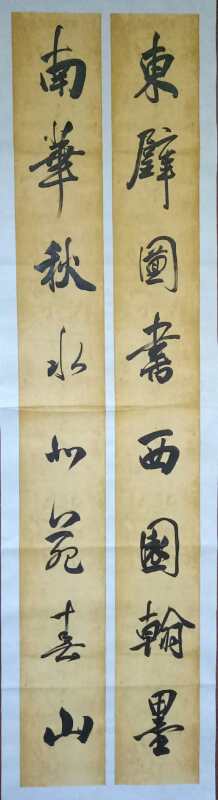 東壁圖書西園翰墨
南華秋水北苑春山